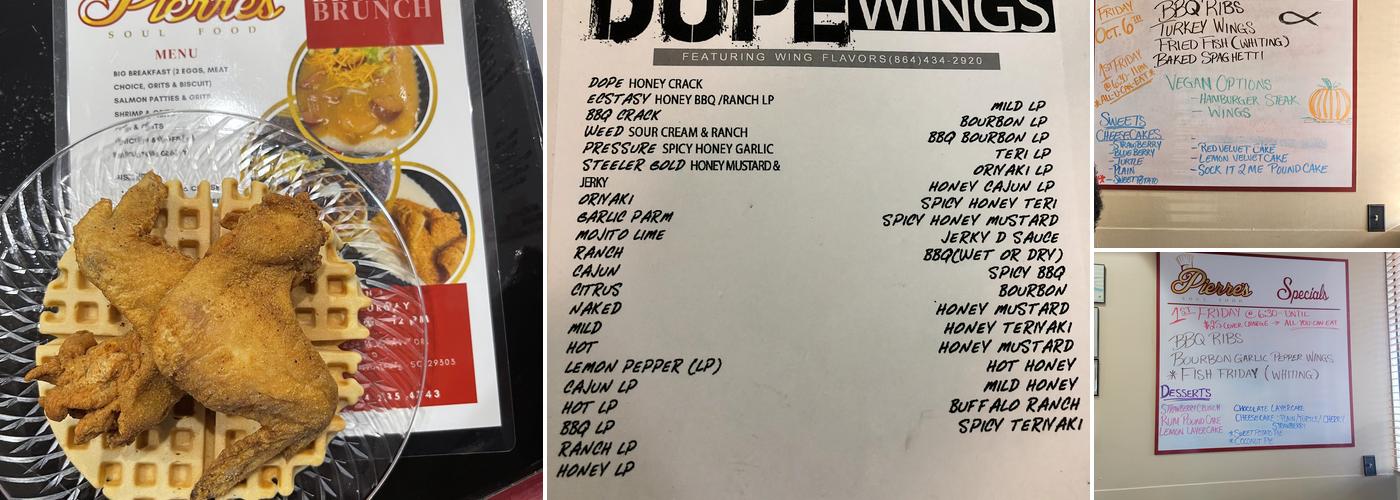 Pierre's
SOUL FOOD
BRUNCH
MENU
BIG BREAKFAST (2 EGGS, MEAT
CHOICE, GRITS & BISCUIT)
SALMON PATTIES & GRITS
SHRIMP &
12 PM
SC 29303
DOPE WINGS
FEATURING WING FLAVORS(864)434-2920
DOPE HONEY CRACK
ECSTASY HONEY BBQ /RANCH LP
BBQ CRACK
WEED SOUR CREAM & RANCH
PRESSURE SPICY HONEY GARLIC
STEELER GOLD HONEY MUSTARD &
JERKY
ORIYAKI
GARLIC PARM
MOJITO LIME
RANCH
CAJUN
CITRUS
NAKED
MILD
HOT
LEMON PEPPER (LP)
CAJUN LP
HOT LP
BBQ LP
RANCH LP
HONEY LP
MILD LP
BOURBON LP
BBQ BOURBON LP
TERI LP
ORIYAKI LP
HONEY CAJUN LP
SPICY HONEY TERI
SPICY HONEY MUSTARD
JERKY D SAUCE
BBQ(WET OR DRY)
SPICY BBQ
BOURBON
HONEY MUSTARD
HONEY TERIYAKI
HONEY MUSTARD
HOT HONEY
MILD HONEY
BUFFALO RANCH
SPICY TERIYAKI
FRIDAY
OCT. 6TH
BBQ RIBS
TURKEY WINGS
FRIED FISH (WHITING)
BAKED SPAGHETTI
1ST FRIDAY
@ 6:30-11PM
*ALL U CAN EAT*
VEGAN OPTIONS
- HAMBURGER STEAK
- WINGS
SWEETS
CHEESECAKES
- STRAWBERRY
- BLUEBERRY
- TURTLE
- PLAIN
- SWEET POTATO
- RED VELVET CAKE
- LEMON VELVET CAKE
- SOCK IT 2 ME POUND CAKE
Pierre's
SOUL FOOD
Specials
1ST FRIDAY @ 6:30-UNTIL
$25 COVER CHARGE → ALL YOU CAN EAT
BBQ RIBS
BOURBON GARLIC PEPPER WINGS
* FISH FRIDAY (WHITING)
DESSERTS
STRAWBERRY CRUNCH
RUM POUND CAKE
LEMON LAYER CAKE
CHOCOLATE LAYER CAKE
CHEESECAKE: PLAIN/TURTLE/CHERRY/
STRAWBERRY
*SWEET POTATO PIE
*COCONUT PIE